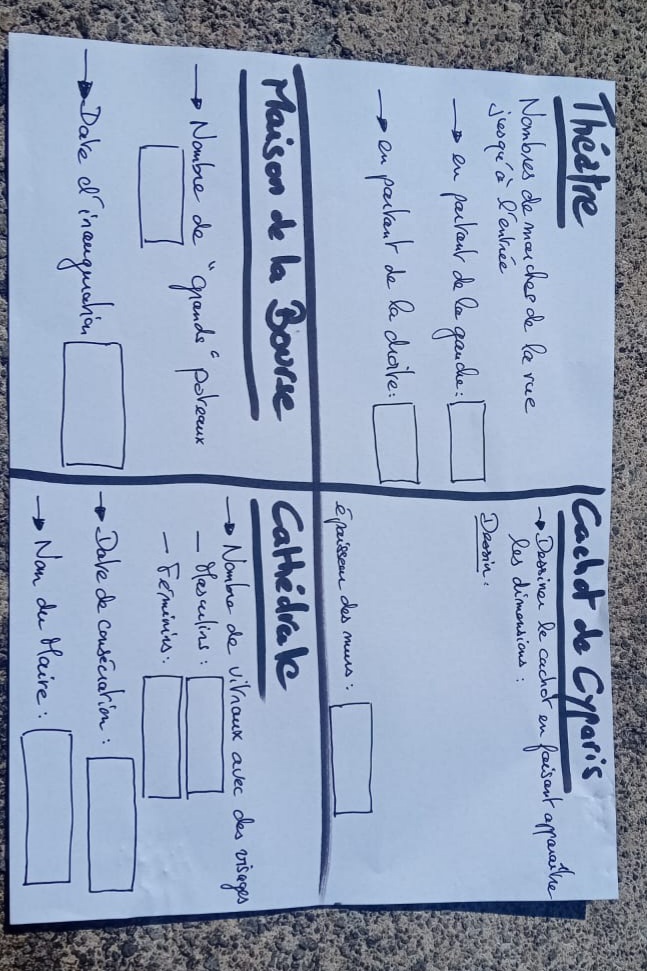 Théâtre
Nombres de marches de la rue
jusqu'à l'entrée
→ en partant de la gauche :
→ en partant de la droite :
Cachot de Cyparis
→ Dessiner le cachot en faisant apparaître
les dimensions :
Dessin :
épaisseur des murs :
Maison de la Bourse
→ Nombre de "grands" poteaux
→ Date d'inauguration
Cathédrale
→ Nombre de vitraux avec des visages
- Masculins :
- Féminins :
→ Date de consécration :
→ Nom du Maire :